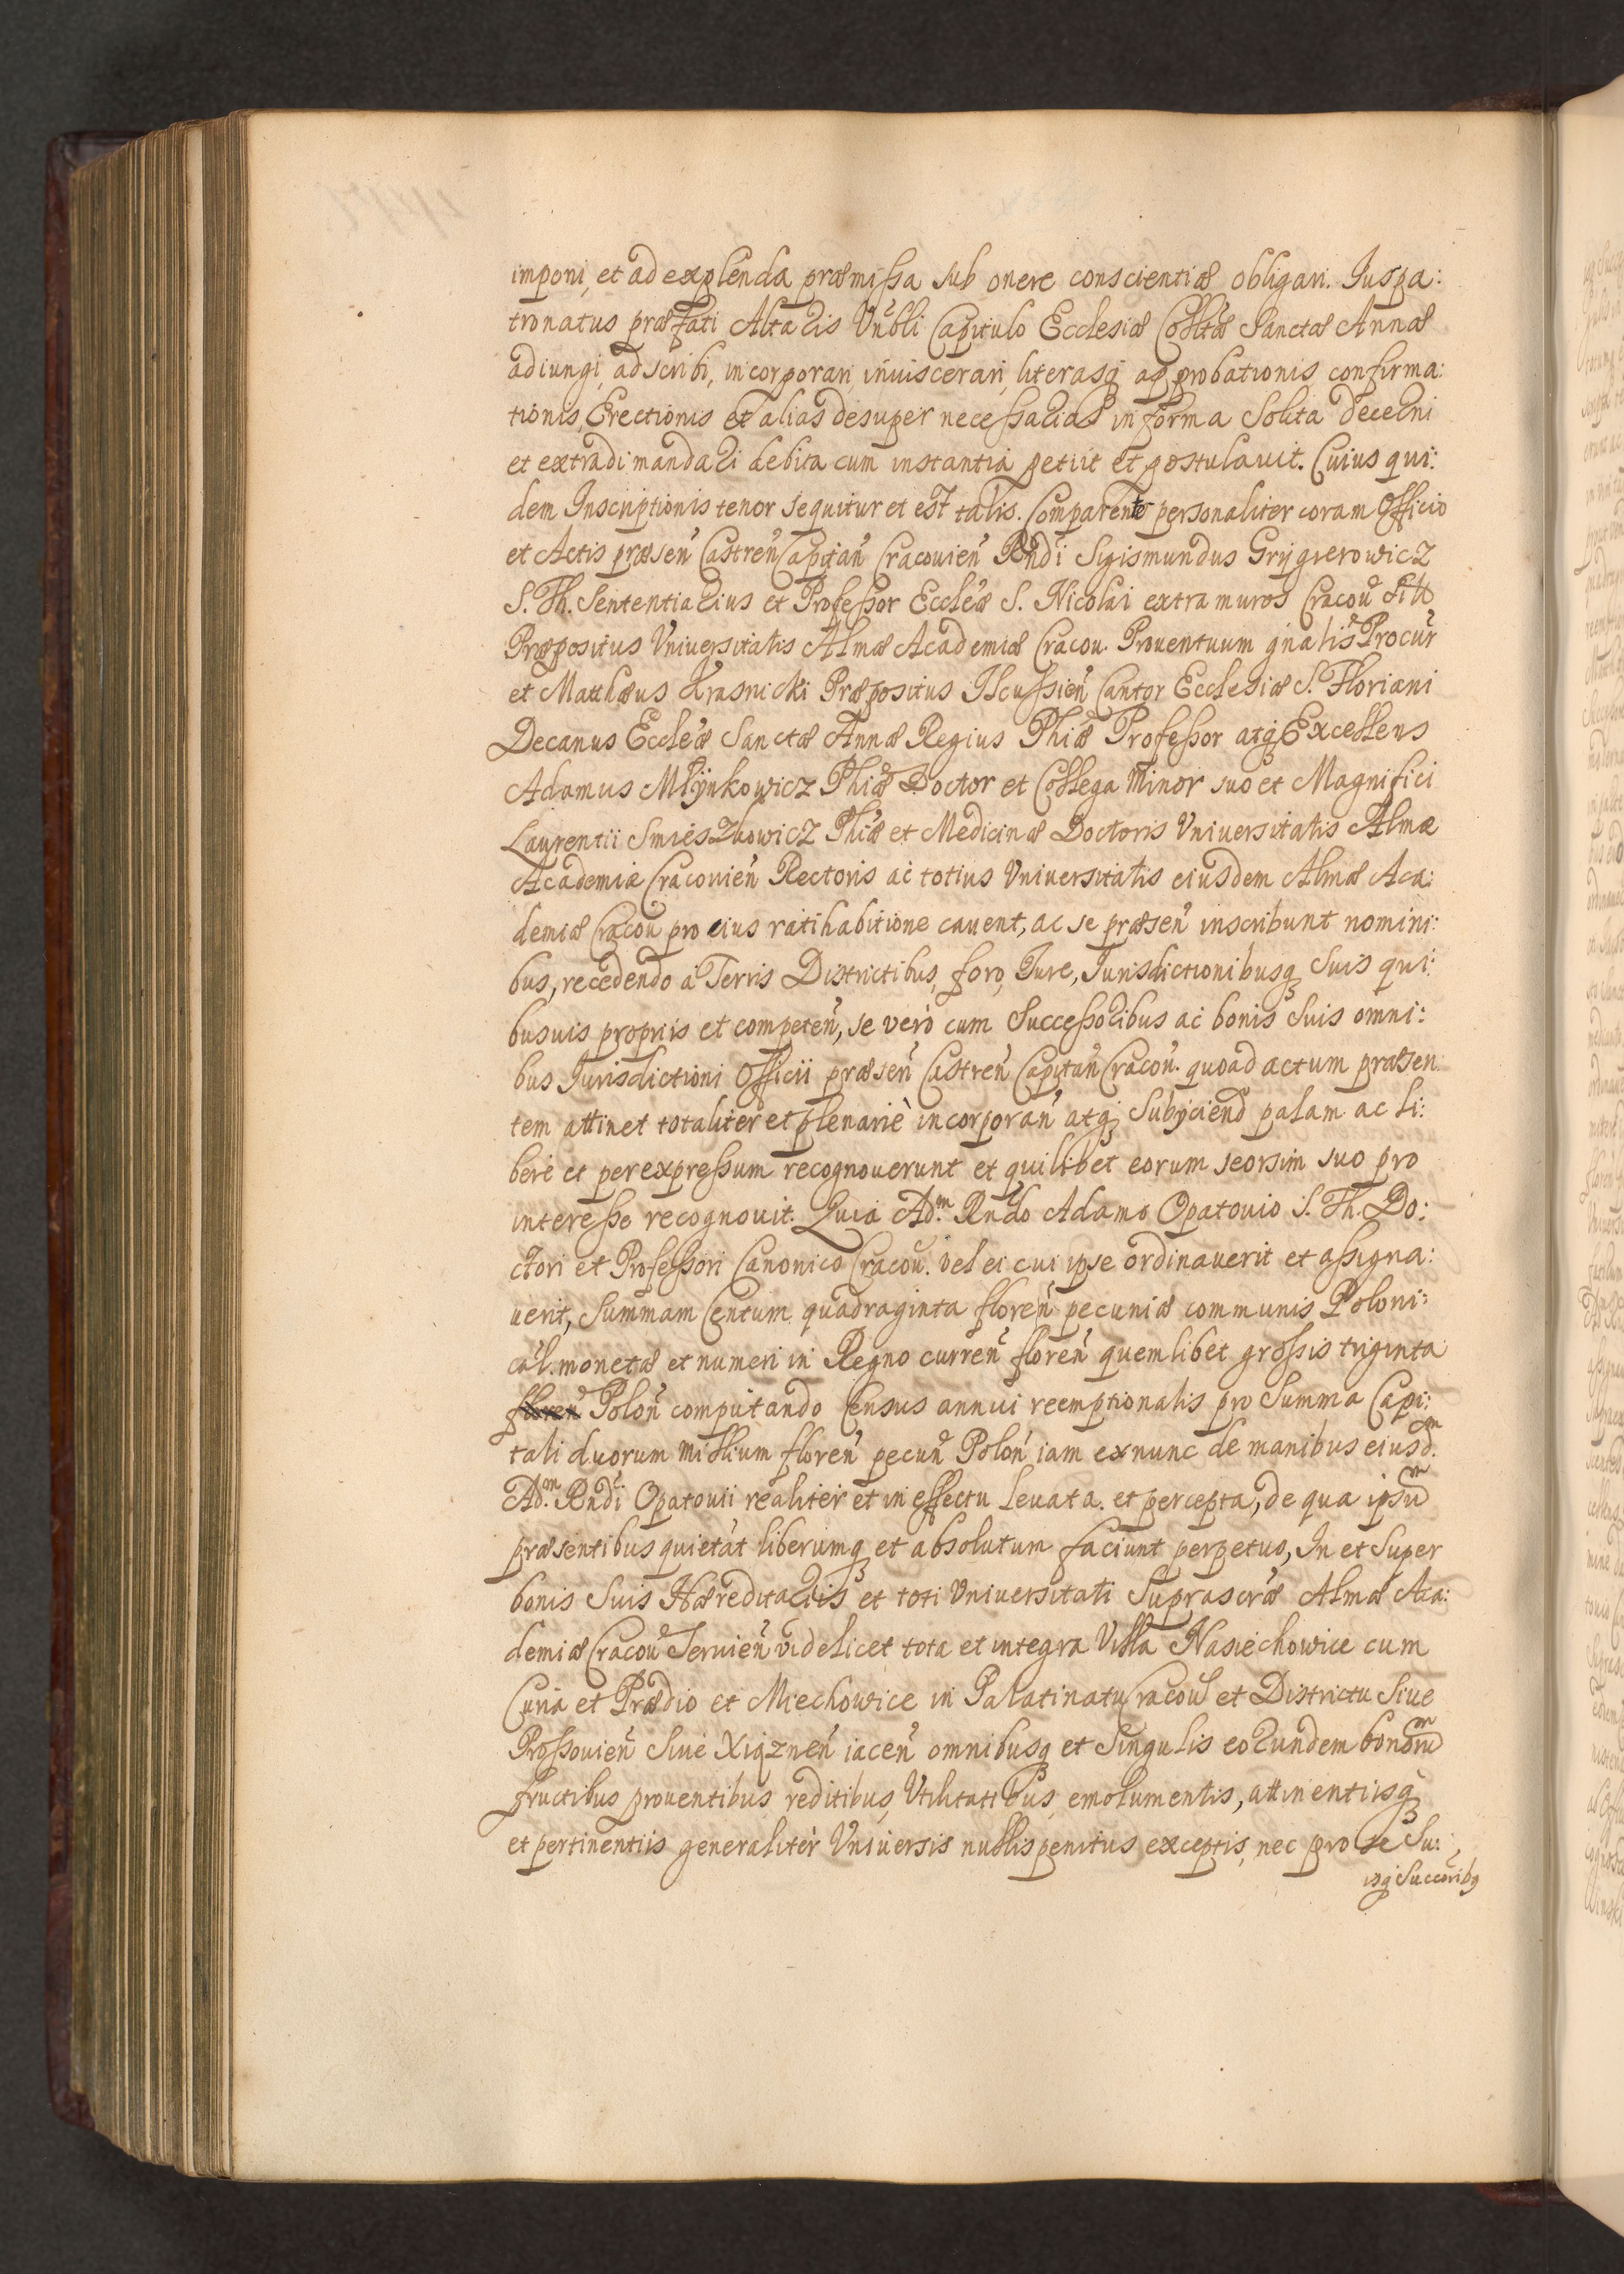 imponi, et ad explenda præmissa sub onere conscientiæ obligari. Iuspa:
tronatus præfati Altaris Vnbli Capitulo Ecclesiæ Colltæ Sanctæ Annæ
adiungi, adscribi, incorporari inuiscerari, literasq; approbationis confirma:
tionis, Erectionis et alias desuper necessarias in forma solita decerni
et extradi mandari debita cum instantia petiit et postulauit. Cuius qui:
dem Inscriptionis tenor sequitur et est talis. Comparentes personaliter coram Officio
et Actis præsen Castren Capitan Cracouien Rndi Sigismundus Grygierowicz
S. Th. Sententiarius et Professor Eccleæ S. Nicolai extra muros Cracou
Præpositus Vniuersitatis Almæ Academiæ Cracou. Prouentuum gnalis Procur
et Matthæus Krasnicki Præpositus Ilcussien Cantor Ecclesiæ S. Floriani
Decanus Eccleæ Sanctæ Annæ Regius Phiæ Professor atq; Excellens
Adamus Młynkowicz Phiæ Doctor et Collega Minor suo et Magnifici
Laurentii Smieszkowicz Phiæ et Medicinæ Doctoris Vniuersitatis Almæ
Academiæ Cracouien Rectoris ac totius Vniuersitatis eiusdem Almæ Aca:
demiæ Cracou pro eius ratihabitione cauent, ac se præsen inscribunt nomini:
bus, recedendo à Terris Districtibus, foro, Iure, Iurisdictionibusq; suis qui:
busuis proprijs et competen, se vero cum Successoribus ac bonis suis omni:
bus Iurisdictioni Officii præsen Castren Capitan Cracou. quoad actum præsen
tem attinet totaliter et plenariè incorporan atq; subijciend palam ac li:
berè et per expressum recognouerunt et quilibet eorum seorsim suo pro
interesse recognouit. Quia Ad.m Rndo Adamo Opatouio S. Th. Do:
ctori et Professori Canonico Cracou. vel ei cui ipse ordinauerit et assigna:
uerit, Summam Centum quadraginta floren pecuniæ communis Poloni:
cal. monetæ et numeri in Regno curren floren quemlibet grossis triginta
floren Polon computando Census annui reemptionalis pro Summa Capi:
tali duorum millium floren pecun Polon iam ex nunc de manibus eiusd.m
Ad.m Rndi Opatouii realiter et in effectu leuata et percepta, de qua ipsum
præsentibus quietat liberumq; et absolutum faciunt perpetuo, In et super
bonis suis Hæreditariis et toti Vniuersitati suprascræ Almæ Aca:
demiæ Cracou seruien videlicet tota et integra Villa Nasiechowice cum
Curia et Prædio et Miechowice in Palatinatu Cracou et Districtu siue
Prossouien siue Xiąznen iacen omnibusq; et singulis eorundem bonorum
fructibus prouentibus, reditibus, Vtilitatibus, emolumentis, attinentiisq;
et pertinentiis generaliter Vniuersis nullis penitus exceptis, nec pro se su:
isq; Succoribq